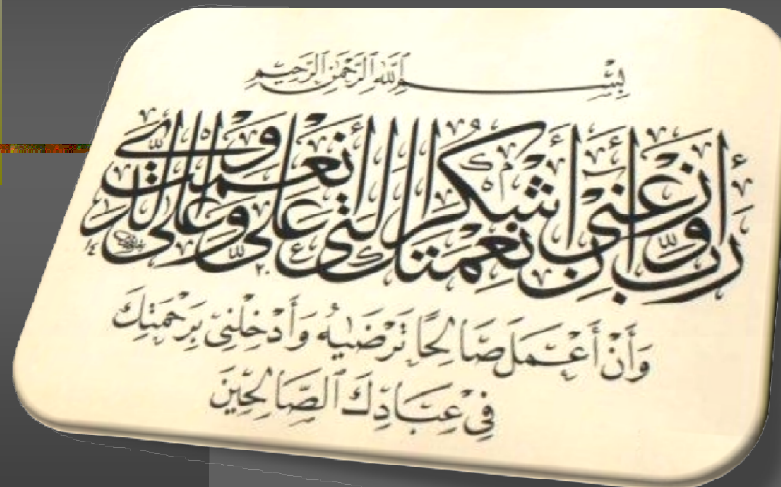 بِسْمِ ٱللَّهِ ٱلرَّحْمَٰنِ ٱلرَّحِيمِ
رَبِّ أَوْزِعْنِي أَنْ أَشْكُرَ نِعْمَتَكَ الَّتِي أَنْعَمْتَ عَلَيَّ وَعَلَى وَالِدَيَّ
وَأَنْ أَعْمَلَ صَالِحًا تَرْضَىٰهُ وَأَدْخِلْنِي بِرَحْمَتِكَ
فِي عِبَادِكَ ٱلصَّالِحِينَ